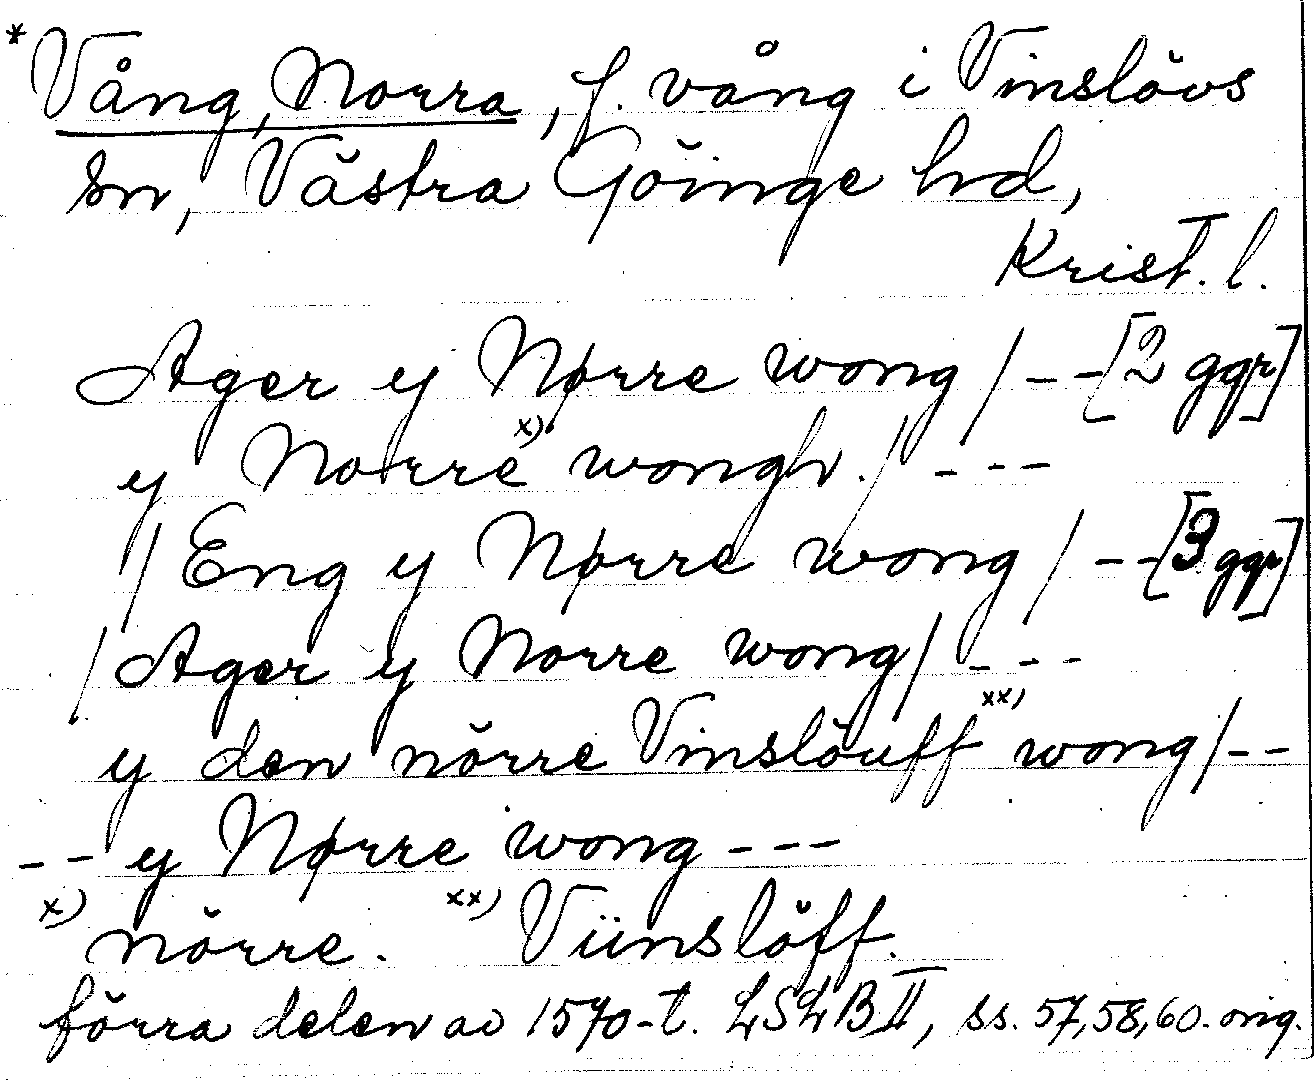 * Vång, Norra, f. vång i Vinslövs
sn, Västra Göinge hd,
Krist. l.
Ager y Nørre wong / -- [2 ggr]
y Norre x) wongh. / ---
/ Eng y Nørre wong / -- [3 ggr]
/ Ager y Norre wong / ---
y den nörre Vinslöuff xx) wong / --
-- y Nørre wong ---
x) nörre. xx) Viinslöff.
förra delen av 1570-t. LSLB II, ss. 57, 58, 60. orig.